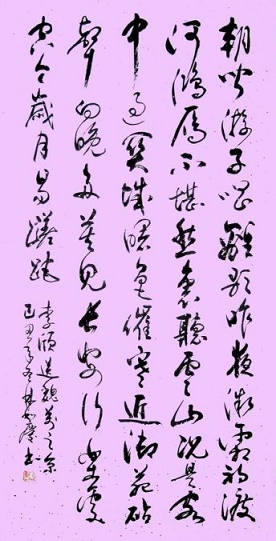 朝聞游子唱離歌昨夜微霜初渡
河鴻雁不堪愁裏聽雲山況是客
中過關城曙色催寒近御苑砧
聲向晚多莫見長安行樂處
空令歲月易蹉跎
李頎送魏萬之京
書